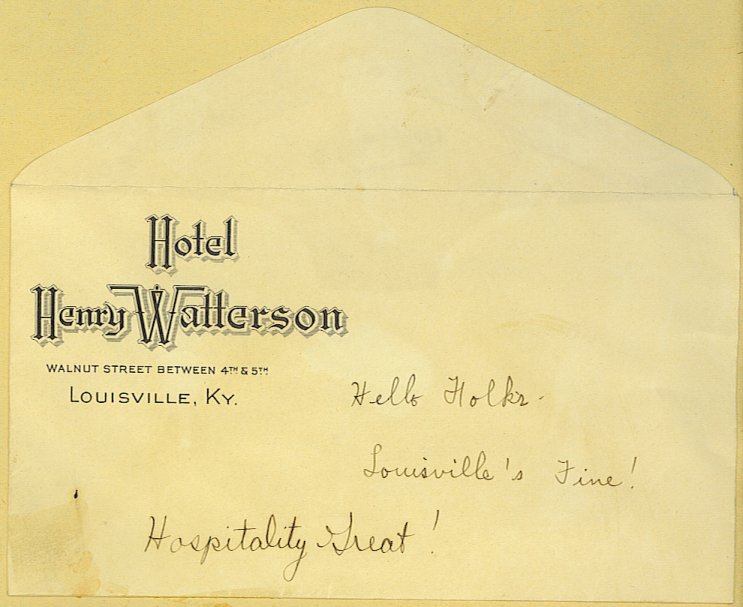 Hotel
Henry Watterson
WALNUT STREET BETWEEN 4TH & 5TH
LOUISVILLE, KY.
Hello Folks-
Louisville's Fine!
Hospitality Great!